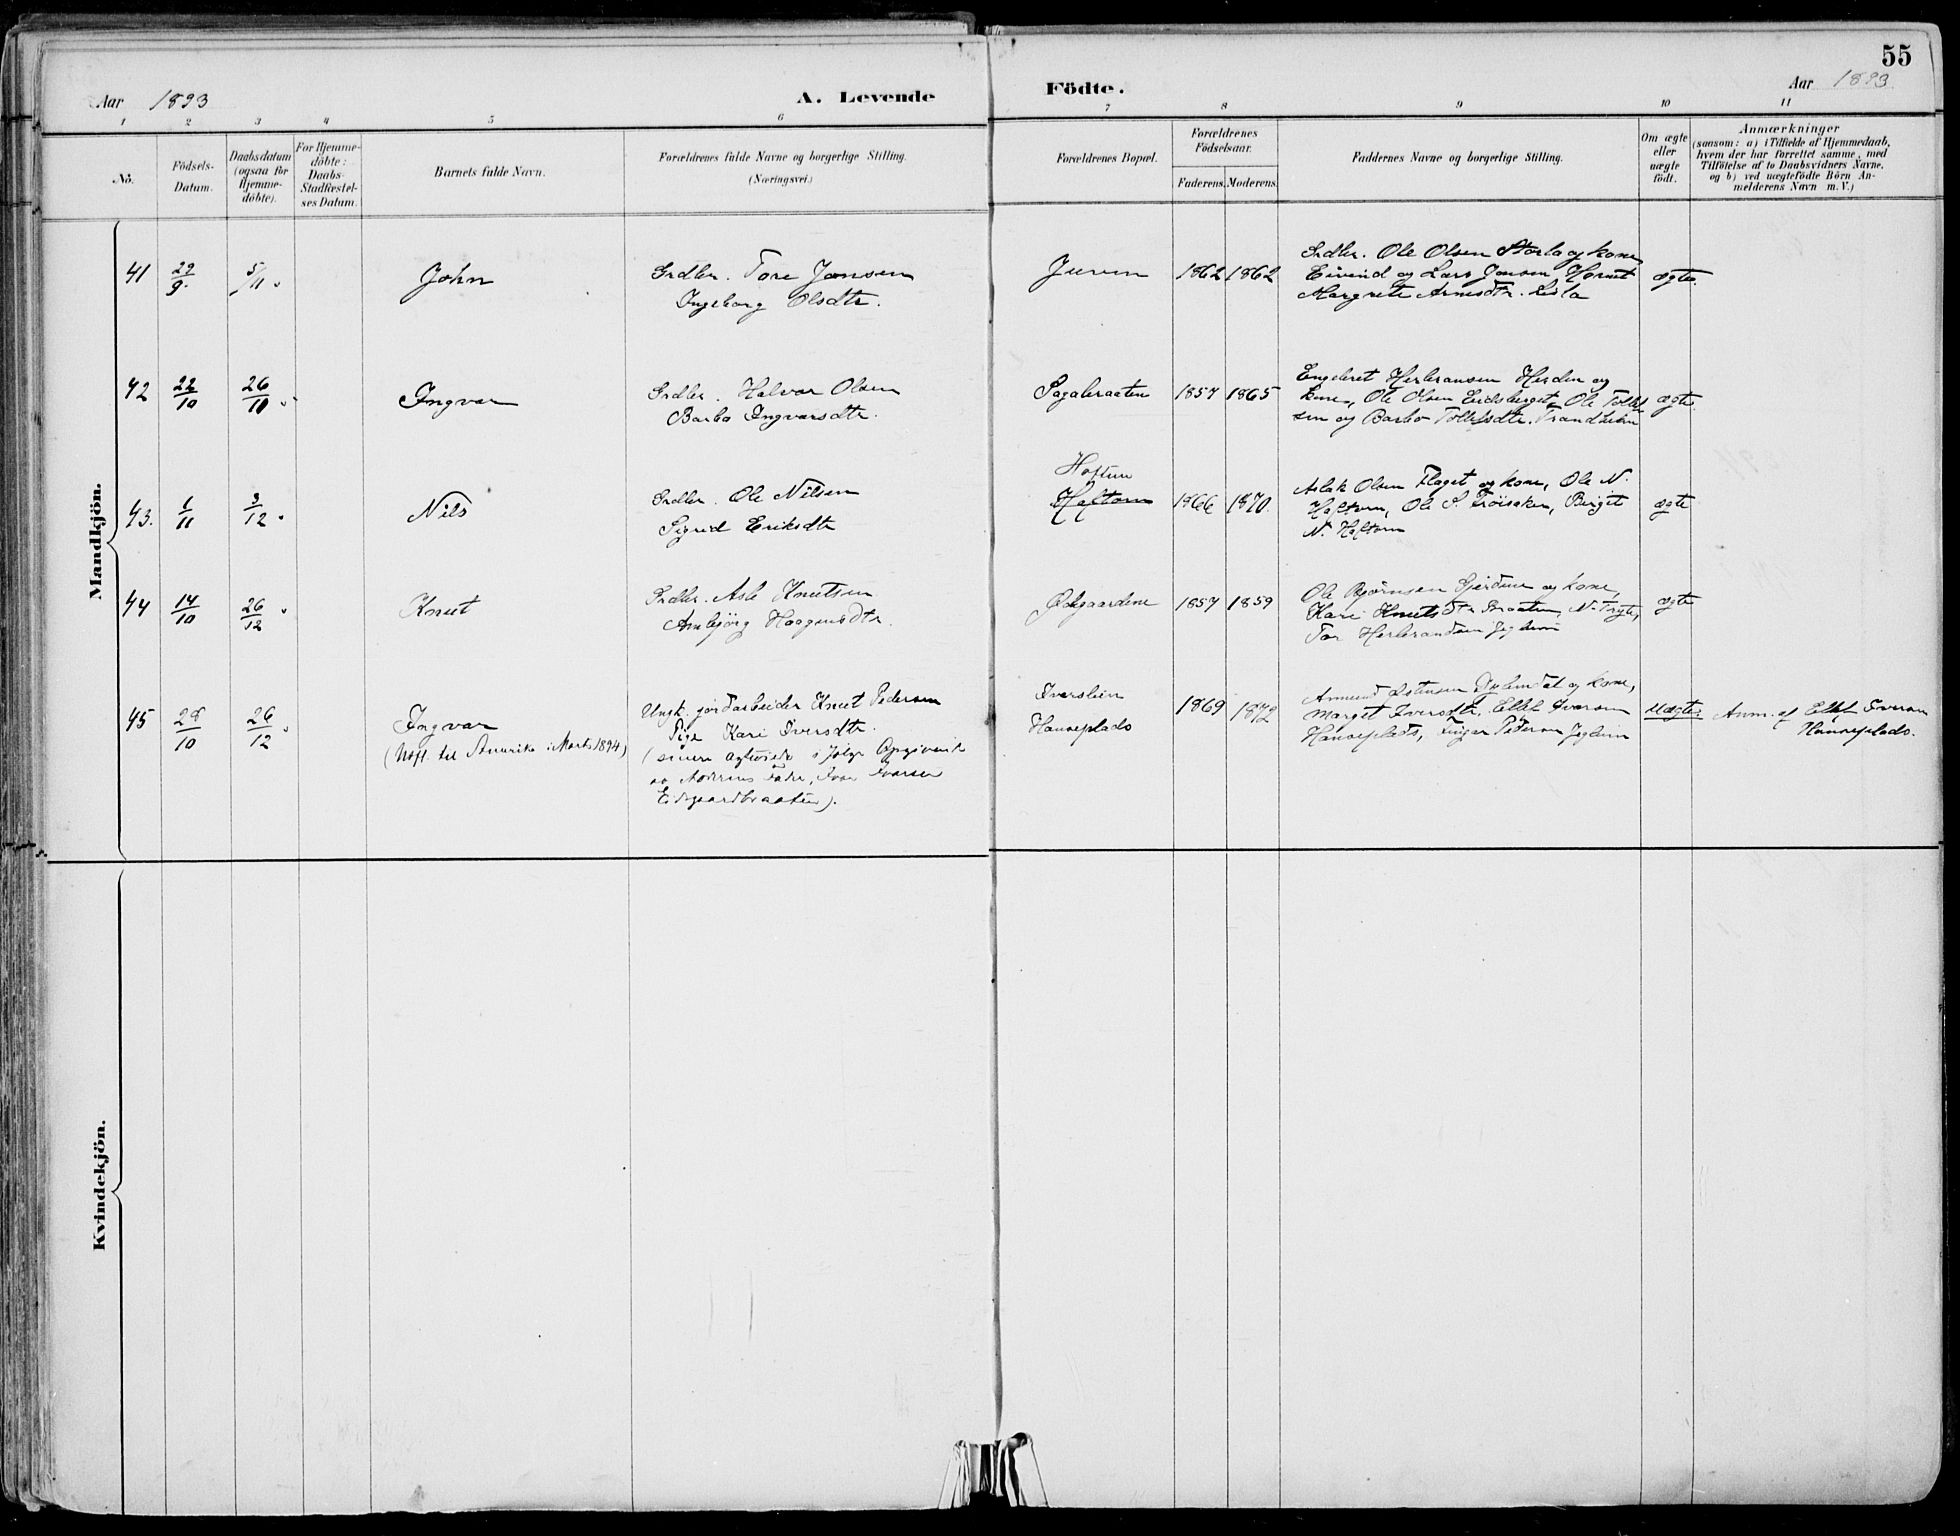 55
Aar 1893
A. Levende
Födte.
Aar 1893
1 2 3 4 5 6 7 8 9 10 11
No.
Födsels-
Datum.
Daabsdatum
(ogsaa for
Hjemme-
döbte).
For Hjemme-
döbte:
Daabs-
Stadfæstel-
ses Datum.
Barnets fulde Navn.
Forældrenes fulde Navne og borgerlige Stilling.
(Næringsvei.)
Forældrenes Bopæl.
Forældrenes
Födselsaar.
Faderens. Moderens.
Faddernes Navne og borgerlige Stilling.
Om ægte
eller
uægte
født.
Anmærkninger
(saasom: a) i Tilfælde af Hjemmedaab,
hvem der har forrettet samme, med
Tilföielse af to Daabsvidners Navne.
og b) ved uægtefödte Börn An-
melderens Navn m. V.)
Mandkjön.
41 29/9. 5/11. John
Srdbr. Tore Jonsen
Ingeborg Olsdtr.
Juven 1862 1862
Srdbr. Ole Olsen Storla og kone,
Eivind og Lars Jonsen
Margrete Arnesdtr. Lila
ægte.
42 22/10 26/11. Ingvar
Srdbr. Halvor Olsen
Barbo Ingvarsdtr.
Sagabraaten 1857 1865
Engebret Herbransen Hesden og
kone, Ole Olsen Eidsberget, Ole Tollef-
sen og Barbo Tollefsdtr. Trandheim
ægte.
43. 1/11 3/12. Nils
Srdbr. Ole Nilsen
Sigrid Eriksdtr
Haftun
Haftorn 1866 1870
Aslak Olsen Flaget og kone, Ole N.
Haftorn, Ole S. Trøisaker, Birgit
N. Haftorn
ægte
44 14/10 26/12. Knut
Srdbr. Asle Knutsen
Ambjörg Haagensdtr.
Ødegaardene 1857 1859
Ole Bjørnsen Gjerdene og kone,
Kari Knutsdtr Braaten, N. Tryte,
Tor Herbrandsen Jeglum
ægte
45 28/10 26/12. Ingvar
(Udfl. til Amerika i Marts 1894)
Ungk. jordarbeider Knut Pedersen
Pige Kari Iversdtr.
(senere ægteviede i følge Opgivende
av Moderens Fader, Iver Iversen
Eidsgaardbraaten).
Iverslien
Hanseplads 1869 1872
Anmund Østensen Gyldendal og kone,
Marget Iversdtr, Ellef Iversen
Hanseplads, Inger Pedersen Jeglum
Uægte.
Anm. af Ellef Iversen
Hanseplads.
Kvindekjön.